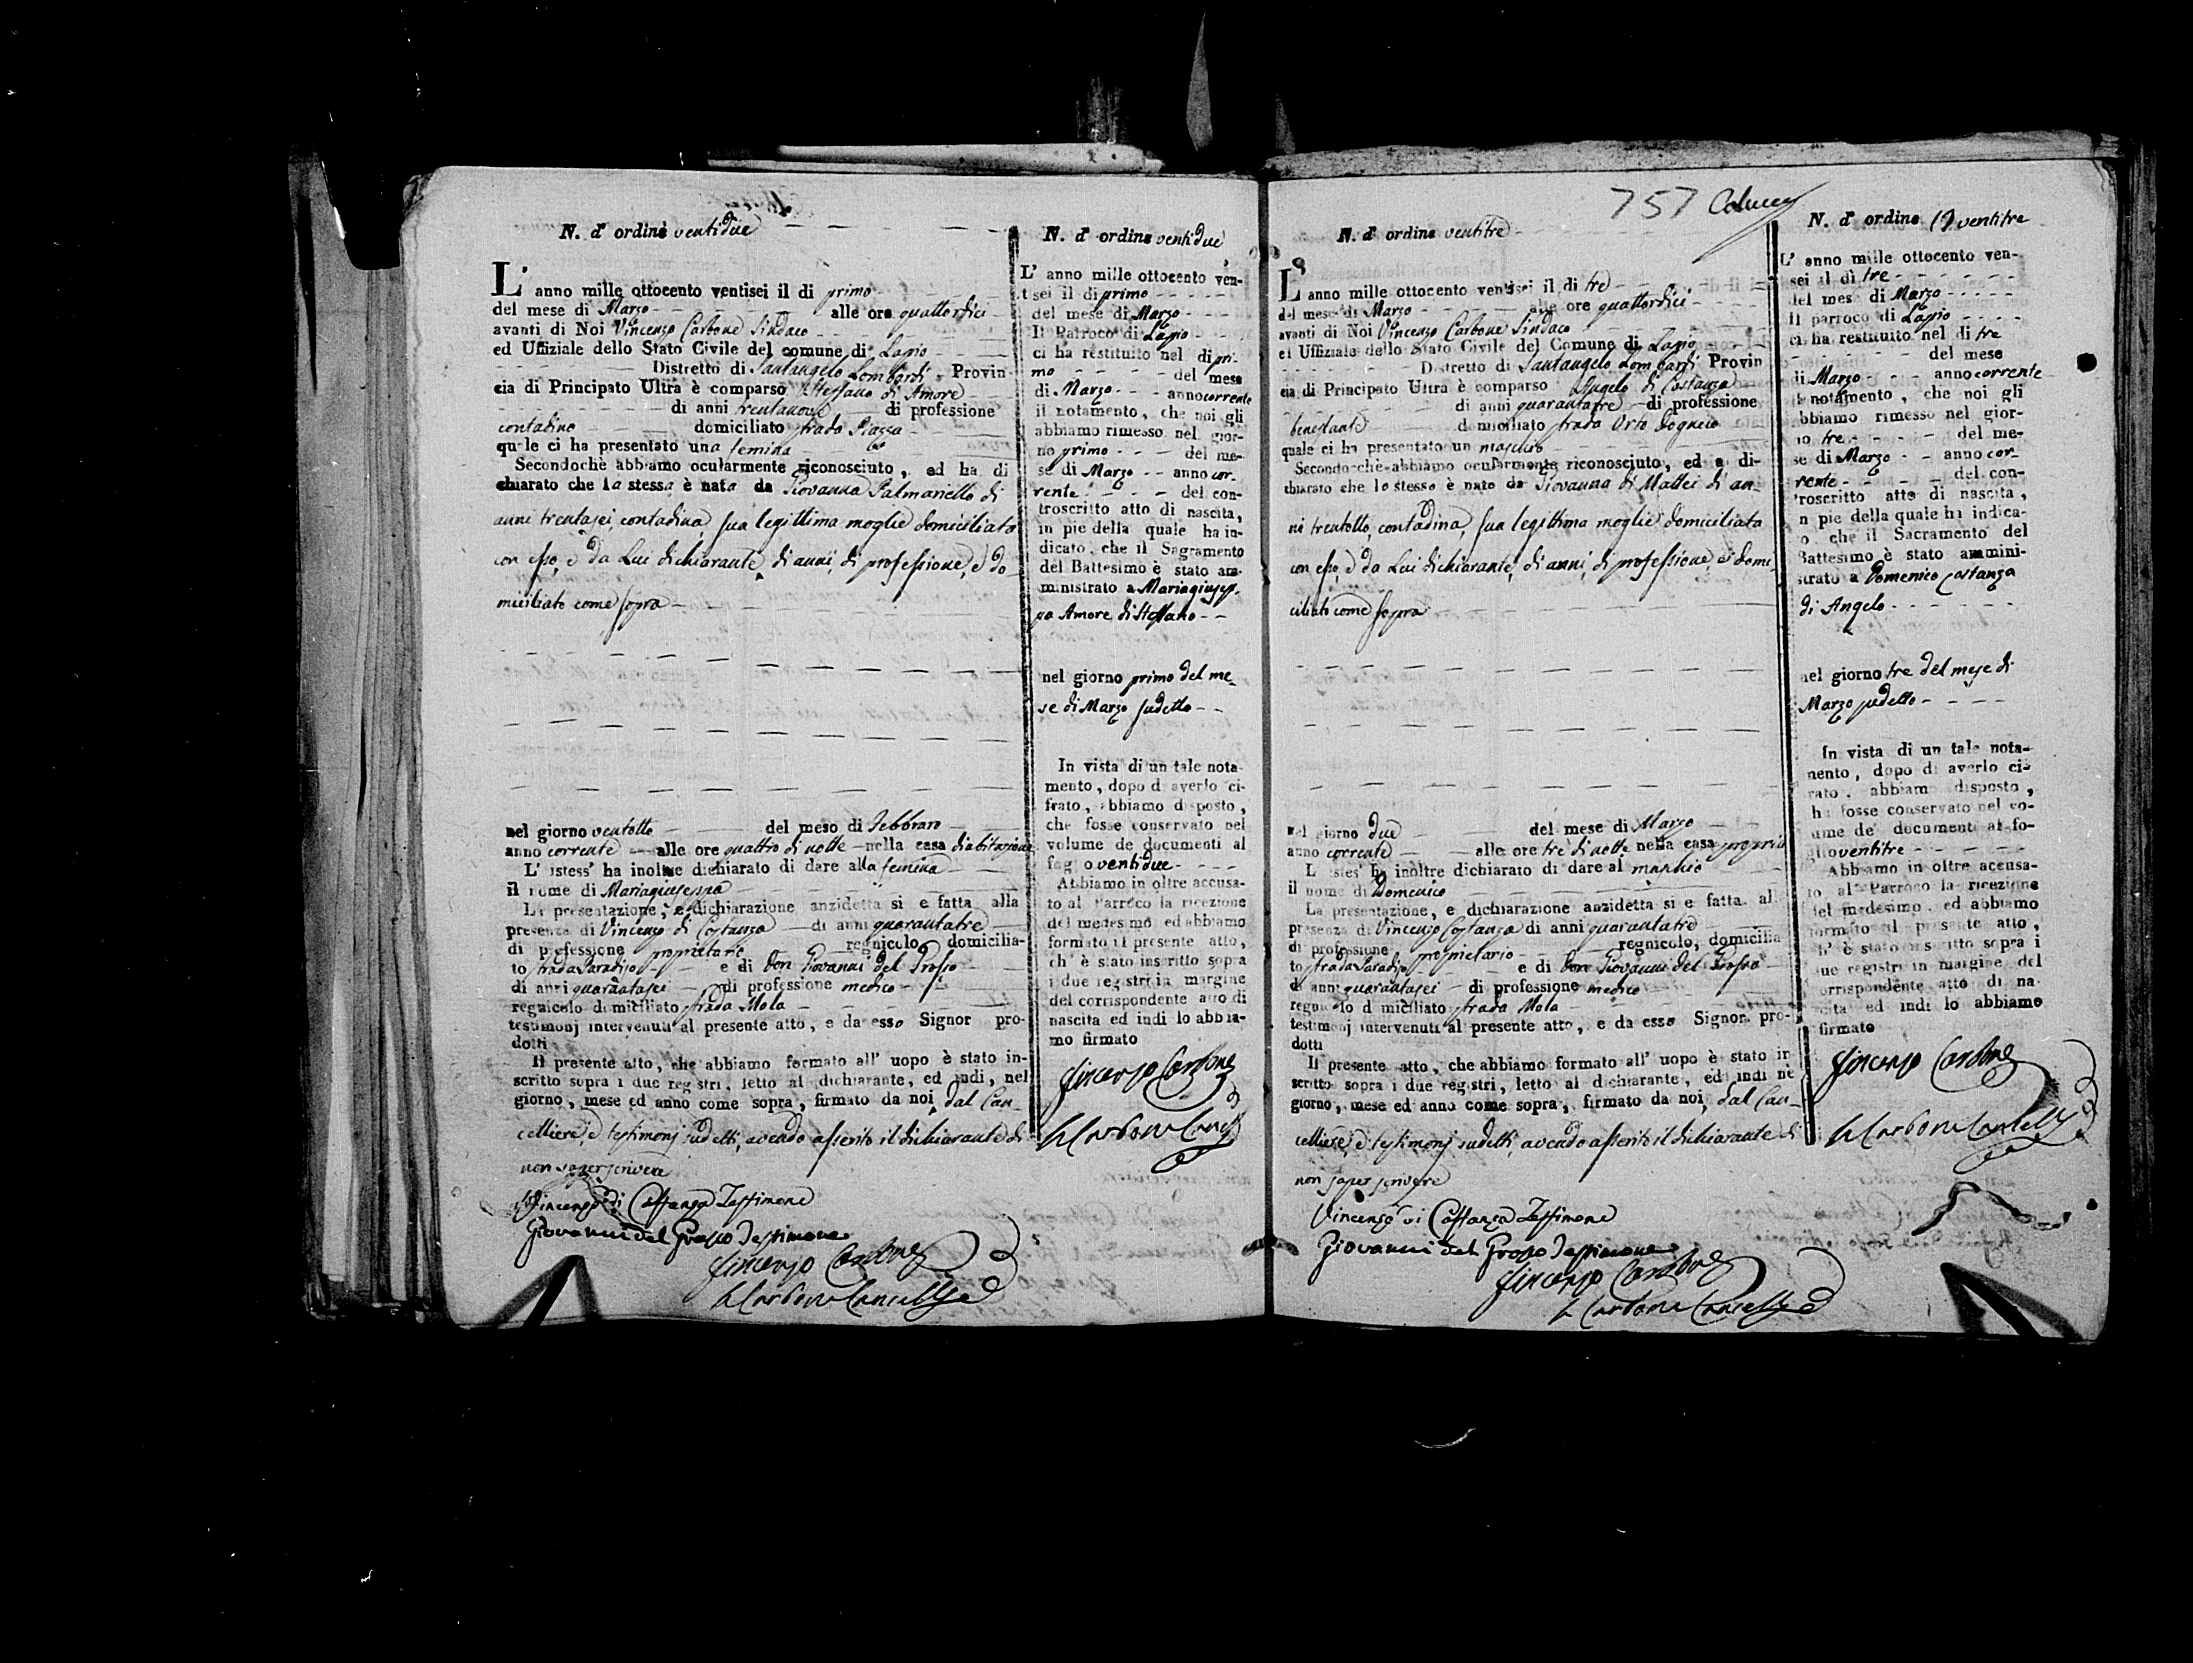 N. d' ordine ventidue
L' anno mille ottocento ventisei il di primo
del mese di Marzo alle ore quattordici
avanti di Noi Vincenzo Carbone Sindaco
ed Uffiziale dello Stato Civile del comune di Lapio
Distretto di Santangelo Lombardi Provin
cia di Principato Ultra è comparso Steffano di Amore
di anni trentanove di professione
contadino domiciliato strada Piazza
quale ci ha presentato una femina
Secondochè abbiamo ocularmente riconosciuto, ed ha di
chiarato che la stessa è nata da Giovanna Palmariello di
anni trentasei, contadina, sua legittima moglie domiciliato
con esso, e da Lui dichiarante, di anni, di professione, e do_
miciliato come sopra
nel giorno ventotto del mese di Febbraro
anno corrente alle ore quattro di notte nella casa di abitazione
L' istess' ha inoltre dichiarato di dare alla femina
il nome di Mariagiuseppa
La presentazione, e dichiarazione anzidetta si e fatta alla
presenza di Vincenzo di Costanza di anni quarantatre
di professione proprietario regnicolo domicilia-
to strada Paradiso e di Don Giovanni del Grosso
di anni quarantasei di professione medico
regnicolo domiciliato strada Mola
testimonj intervenuti al presente atto, e da esso Signor pro-
dotti
Il presente atto, che abbiamo formato all' uopo è stato in-
scritto sopra i due registri, letto al dichiarante, ed indi, nel
giorno, mese ed anno come sopra, firmato da noi, dal Can_
celliere, e testimonj sudetti, avendo asserito il dichiarante di
non saper scrivere
Vincenzo di Costanza Testimone
Giovanni del Grosso Testimone
Vincenzo Carbone
Carbone Cancell.e
N. d' ordine ventidue
L' anno mille ottocento ven-
tisei il di primo
del mese di Marzo
Il Parroco di Lapio
ci ha restituito nel di pri_
mo del mese
di Marzo anno corrente
il notamento, che noi gli
abbiamo rimesso nel gior-
no primo del me-
se di Marzo anno cor_
rente del con-
troscritto atto di nascita,
in pie della quale ha in-
dicato, che il Sagramento
del Battesimo è stato am-
ministrato a Mariagiusep_
pa Amore di Steffano
nel giorno primo del me_
se di Marzo sudetto
In vista di un tale nota-
mento, dopo d averlo ci-
frato, abbiamo disposto,
che fosse conservato nel
volume de documenti al
foglio ventidue
Abbiamo in oltre accusa-
to al Parroco la ricezione
del medesimo ed abbiamo
formato il presente atto,
ch' è stato inscritto sopra
i due registri in margine
del corrispondente atto di
nascita ed indi lo abbia-
mo firmato
Vincenzo Carbone
Carbone Cancell.e
757
N. d' ordine ventitre
L' anno mille ottocento ventisei il di tre
del mese di Marzo alle ore quattordici
avanti di Noi Vincenzo Carbone Sindaco
ed Uffiziale dello Stato Civile del Comune di Lapio
Distretto di Santangelo Lombardi Provin
cia di Principato Ultra è comparso Angelo di Costanza
di anni quarantatre di professione
benestante domiciliato strada Orto
quale ci ha presentato un maschio
Secondocchè abbiamo ocularmente riconosciuto, ed a di-
chiarato che lo stesso è nato da Giovanna di Mattei di an_
ni trentotto, contadina, sua legittima moglie domiciliata
con esso, e da Lui dichiarante, di anni, di professione, e domi_
ciliato come sopra
nel giorno due del mese di Marzo
anno corrente alle ore tre di notte nella casa propria
L' istes' ha inoltre dichiarato di dare al maschio
il nome di Domenico
La presentazione, e dichiarazione anzidetta si e fatta all
presenza di Vincenzo Costanza di anni quarantatre
di professione proprietario regnicolo, domicilia
to strada Paradiso e di Don Giovanni del Grosso
di anni quarantasei di professione medico
regnicolo domiciliato strada Mola
testimonj intervenuti al presente atto, e da esso Signor pro-
dotti
Il presente atto, che abbiamo formato all' uopo è stato in
scritto sopra i due registri, letto al dichiarante, ed indi ne
giorno, mese ed anno come sopra, firmato da noi, dal Can_
celliere, e testimonj sudetti, avendo asserito il dichiarante di
non saper scrivere
Vincenzo di Costanza Testimone
Giovanni del Grosso Testimone
Vincenzo Carbone
Carbone Cancell.e
N. d' ordine ventitre
L' anno mille ottocento ven-
sei il di tre
del mese di Marzo
Il parroco di Lapio
ci ha restituito nel di tre
del mese
di Marzo anno corrente
il notamento, che noi gli
abbiamo rimesso nel gior-
no tre del me-
se di Marzo anno cor_
rente del con-
troscritto atto di nascita,
in pie della quale ha indica-
to che il Sacramento del
Battesimo è stato ammini-
strato a Domenico Costanza
di Angelo
nel giorno tre del mese di
Marzo sudetto
In vista di un tale nota-
mento, dopo di averlo ci-
frato, abbiamo disposto,
che fosse conservato nel vo-
lume de' documenti al fo-
glio ventitre
Abbiamo in oltre accusa-
to al Parroco la ricezione
del medesimo, ed abbiamo
formato il presente atto,
ch' è stato inscritto sopra i
due registri in margine del
corrispondente atto di na-
scita ed indi lo abbiamo
firmato
Vincenzo Carbone
Carbone Cancell.e